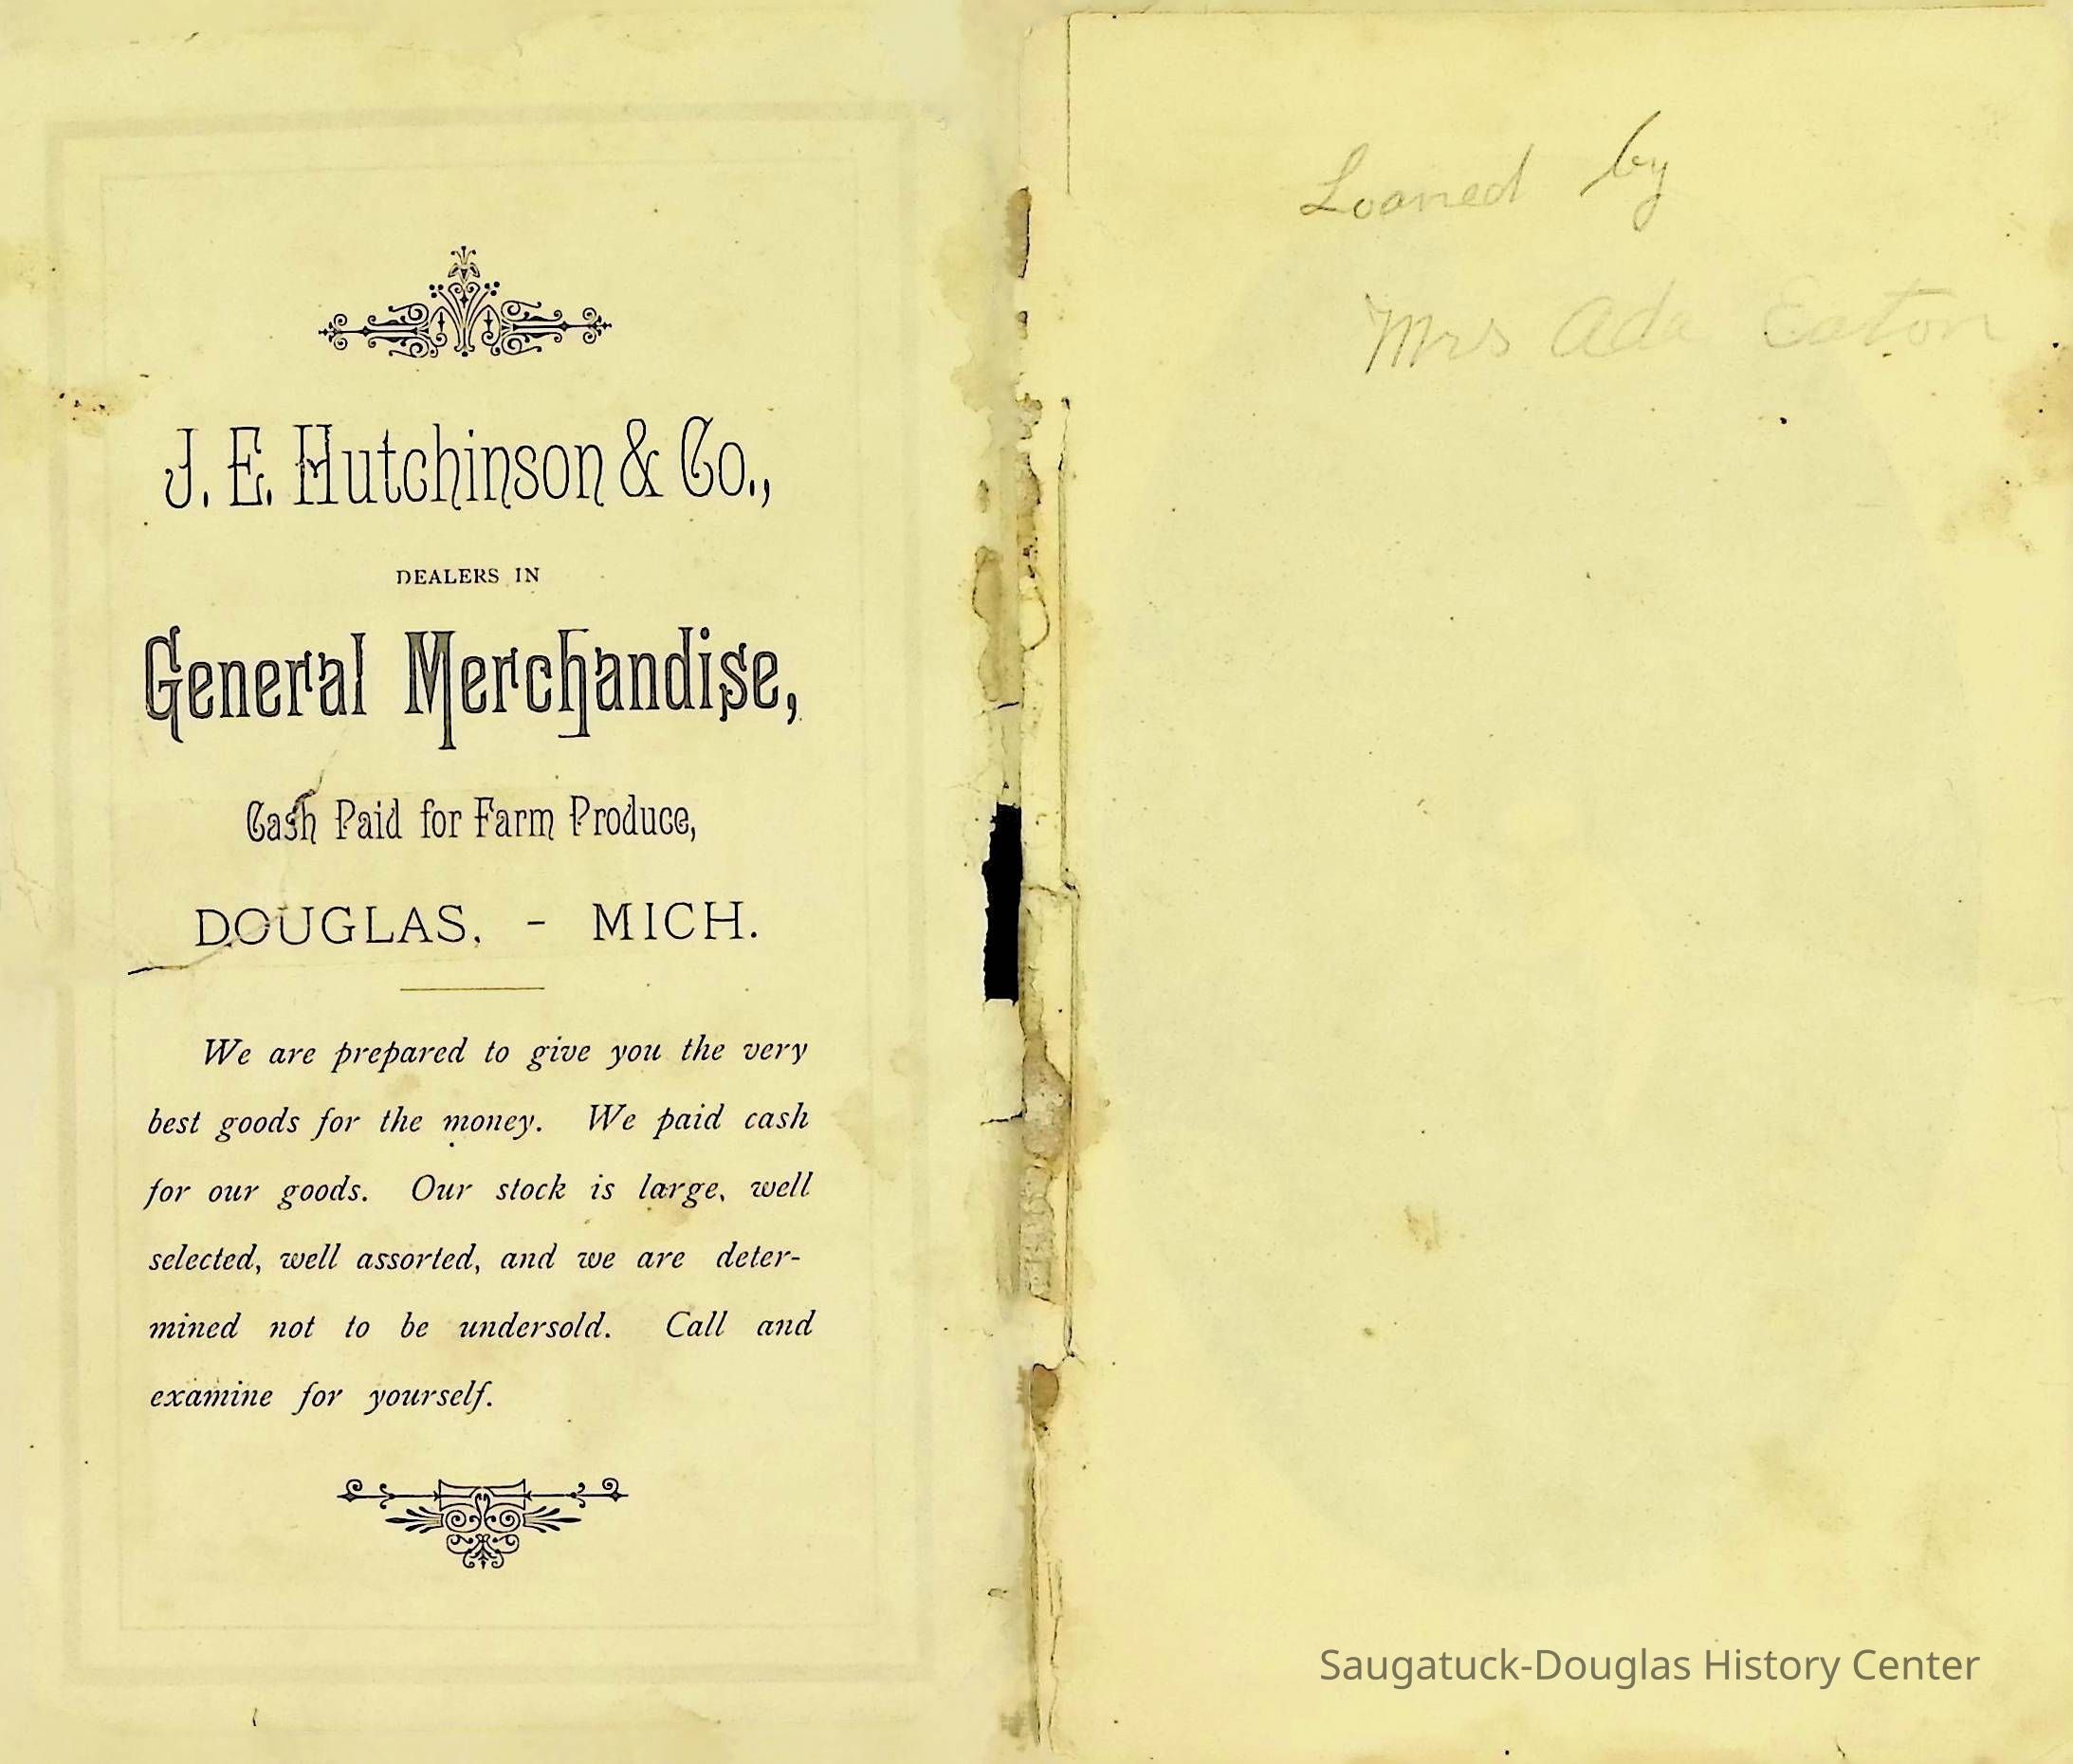 J. E. Hutchinson & Co.,
DEALERS IN
General Merchandise,
Cash Paid for Farm Produce,
DOUGLAS, - MICH.
We are prepared to give you the very
best goods for the money. We paid cash
for our goods. Our stock is large, well
selected, well assorted, and we are deter-
mined not to be undersold. Call and
examine for yourself.
Loaned by
Mrs Ada Eaton
Saugatuck-Douglas History Center